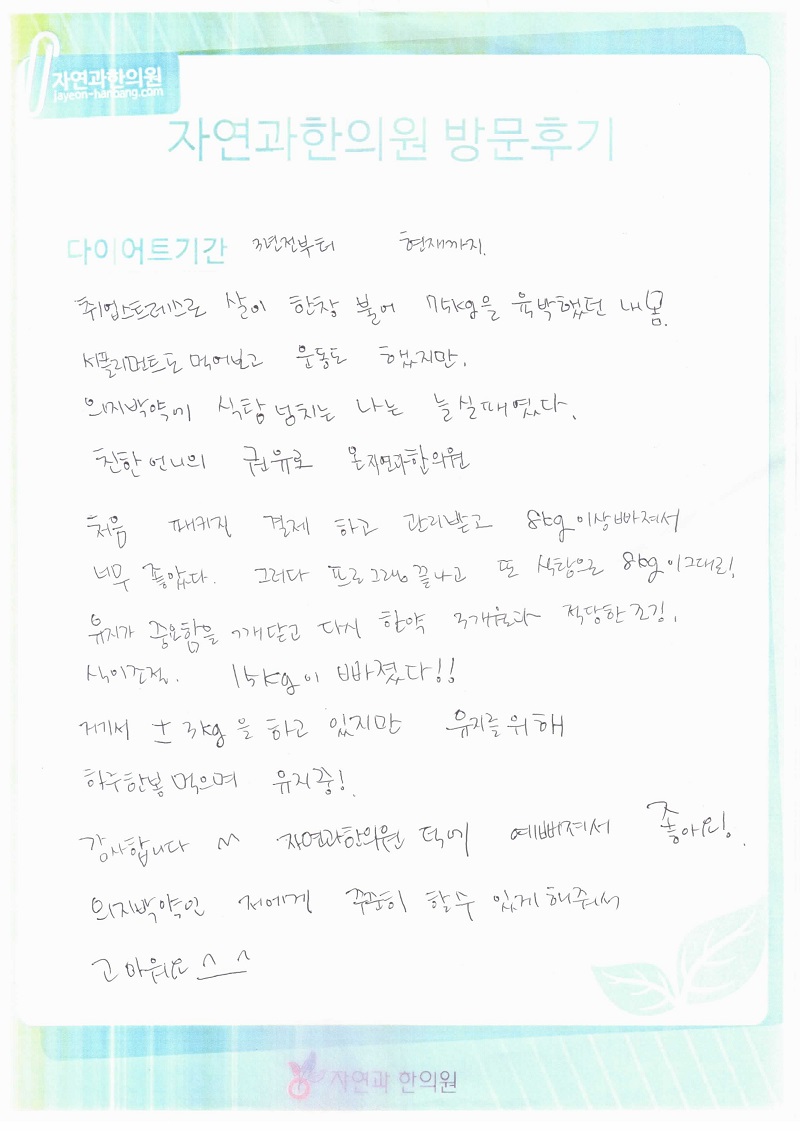 자연과한의원
jayeon-hanbang.com
자연과한의원 방문후기
다이어트기간 3년전부터 현재까지.
취업스트레스로 살이 한창 불어 75kg을 육박했던 내몸.
써플리먼트도 먹어보고 운동도 했지만.
의지박약에 식탐넘치는 나는 늘 실패였다.
친한언니의 권유로 온 자연과한의원
처음 패키지 결제 하고 관리받고 8kg이상빠져서
너무 좋았다. 그러다 프로그램끝나고 또 식탐으로 8kg이그대로!
유지가 중요함을 깨닫고 다시 한약 3개월과 적당한조깅.
식이조절. 15kg이 빠졌다!!
거기서 ±3kg을 하고 있지만 유지를위해
하루한봉 먹으며 유지중!
감사합니다 ^^ 자연과한의원 덕에 예뻐져서 좋아요!.
의지박약인 저에게 꾸준히 할수 있게해줘서
고마워요^^
자연과 한의원